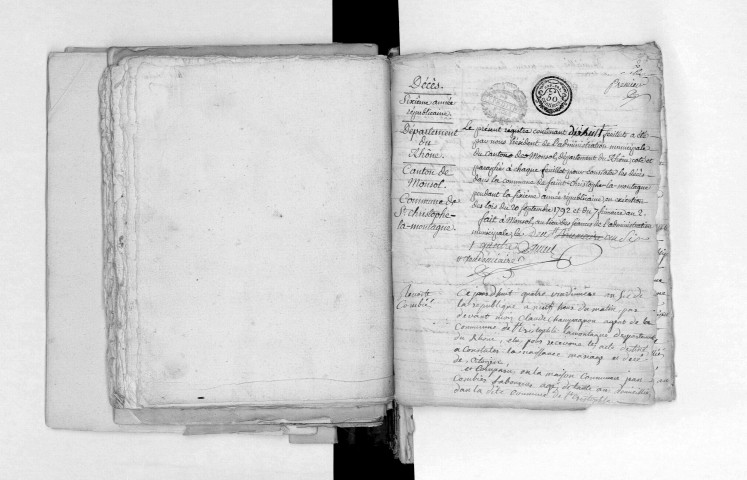 Décès.
Sixième année
républicaine.
Département
du
Rhône.
Canton de
Monsol.
Commune de
St Christophe-
la-montagne.
premier
Le présent registre contenant dixhuit feuillets a été
par nous Président de l'administration municipale
du Canton de Monsol, département du Rhône, coté et
paraphé à chaque feuillet pour constater les décès
dans la commune de Saint-Christophe-la-montagne
pendant la sixième année républicaine en exécution
des lois du 20 septembre 1792 et du 7 frimaire an 2.
fait à Monsol, au lieu des séances de l'administration
municipale, le
Combié
Ce jourd'huit quatre vendémière an six de
la république a neuf heure du matin, par
devant moy Claude Champagnon agent de la
Commune de St Cristophle lamontagne département
du Rhône, elu pour recevoire les acte
a Constater la naissance mariage et décé
de Citoyen
et Comparu en la maison Commune jean
Combier laboureur agé de domicillié
dan la dite Commune de St Cristophle